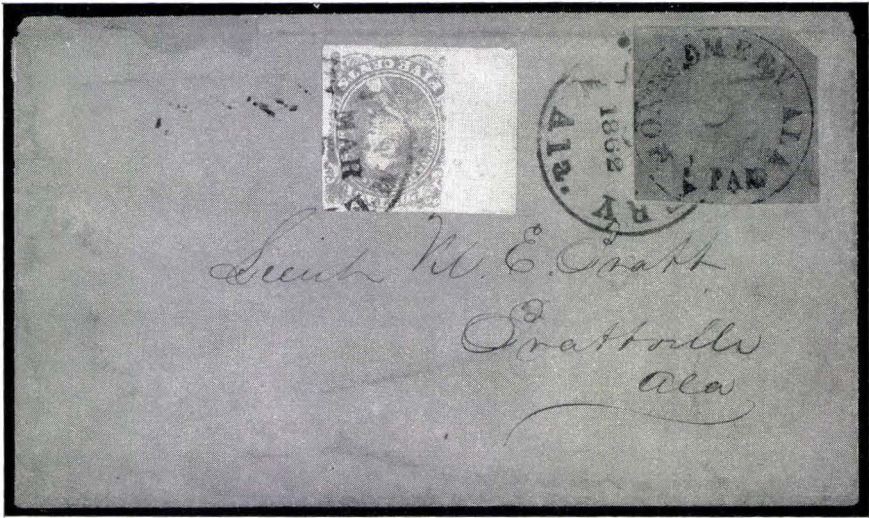 MONTGOMERY. ALA
5
PAID
1862
Ala.
MAR
Lieut M. E. Pratt
Prattville
Ala